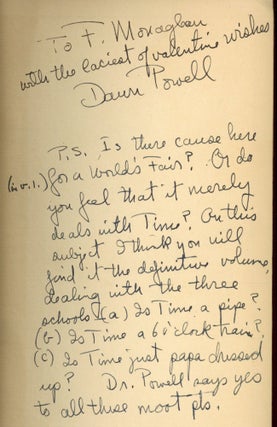 To F. Monaghan
with the laciest of valentine wishes
Dawn Powell
P.S. Is there cause here
(in v. 1.) for a World's Fair? Or do
you feel that it merely
deals with Time? On this
subject I think you will
find it the definitive volume,
dealing with the three
schools (a) Is Time a pipe?
(b) Is Time a 6 o'clock train?
(c) Is Time just papa dressed
up? Dr. Powell says yes
to all these moot pts.